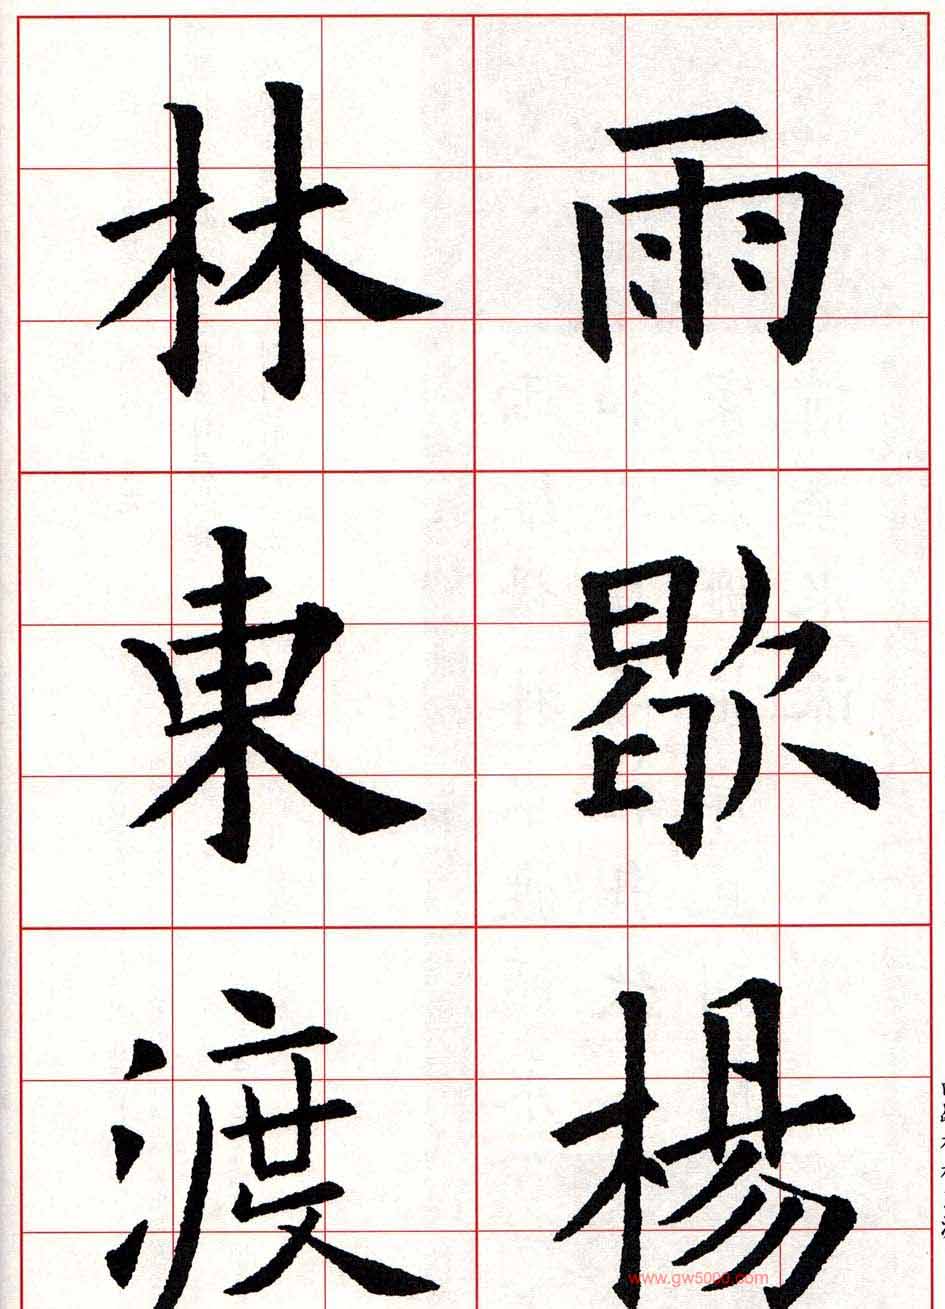 雨歇楊
林東渡
www.gw5000.com